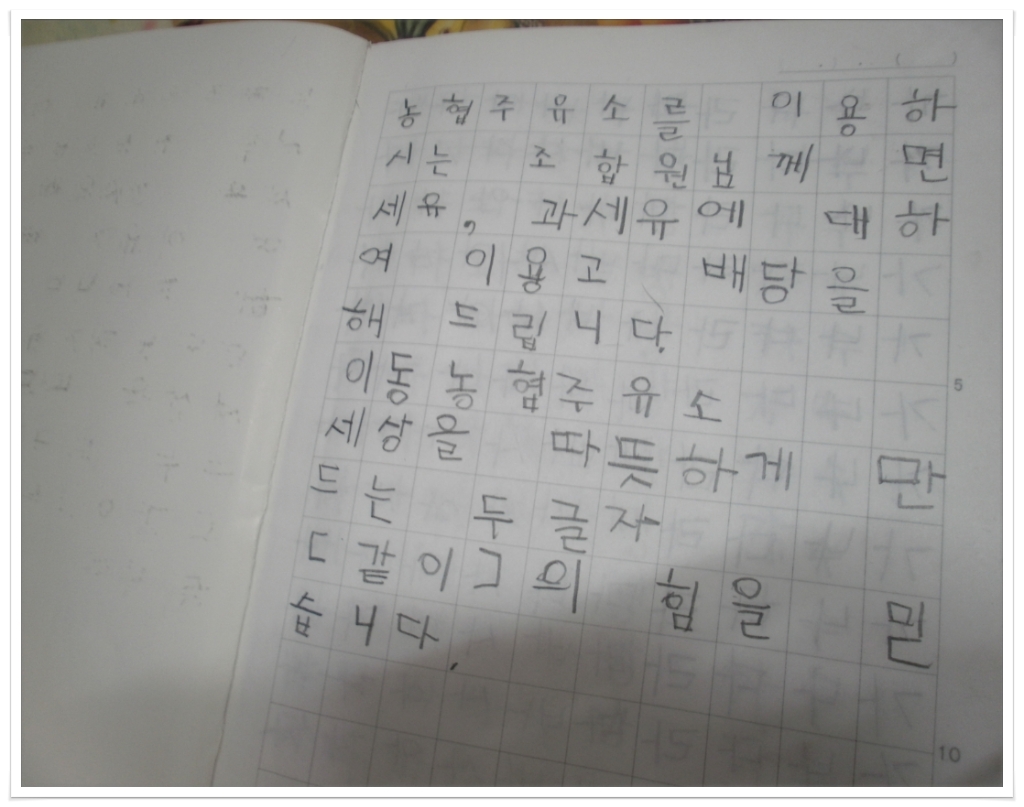 농협주유소를 이용하
시는 조합원님께 면
세유, 과세유에 대하
여 이용고 배당을
해 드립니다.
이동농협주유소
세상을 따뜻하게 만
드는 두글자
「같이」의 힘을 믿
습니다.
5
10